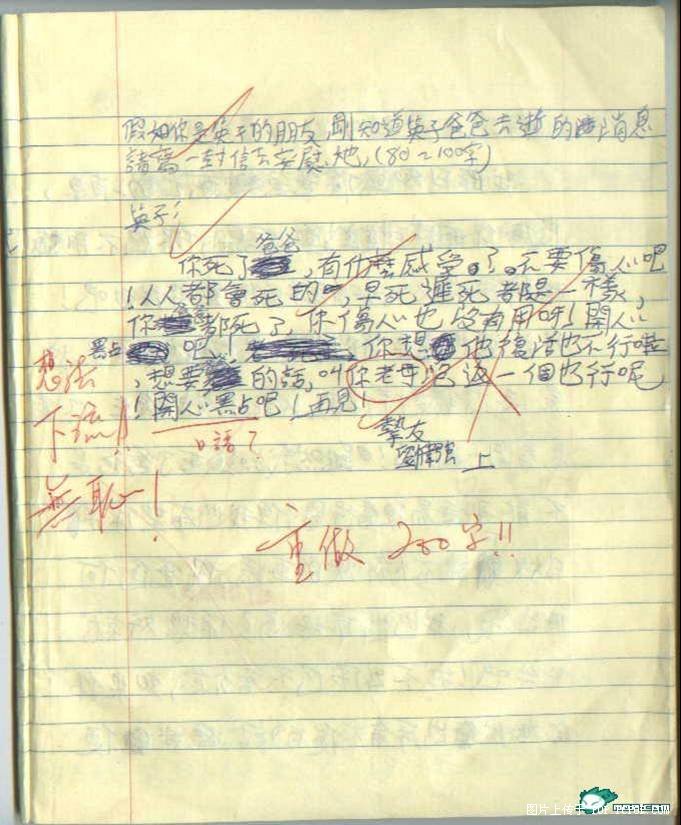 假如你是英子的朋友,剛知道英子爸爸去逝的消息
請寫一封信去安慰她,(80~100字)
英子:
爸爸
你死了,有什麼感受。了。不要傷心吧
!人人都會死的,早死遲死都是一樣,
你都死了,你傷心也沒有用呀!開心
點吧,你想他復活也不行啦
,想要的話,叫你老母再一個也行呢
!開心點吧!再見!
摯友
劉 上
想法
下流!!
無恥!
口語?
重做 200字!!
图片上传于